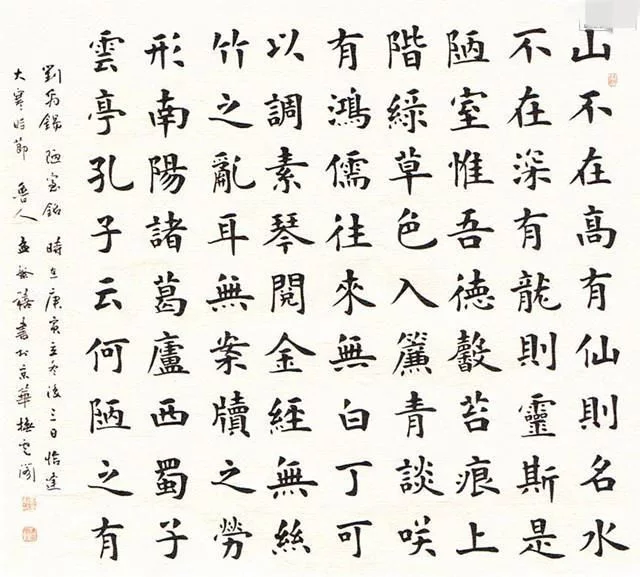 山不在高有仙則名水
不在深有龍則靈斯是
陋室惟吾德馨苔痕上
階綠草色入簾青談咲
有鴻儒往來無白丁可
以調素琴閱金經無絲
竹之亂耳無案牘之勞
形南陽諸葛廬西蜀子
雲亭孔子云何陋之有
劉禹錫陋室銘 時在庚寅後三日恰逢
大寒時節 魯人孟繁禧書於京華